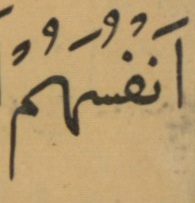 اَنفُسُهُمُ